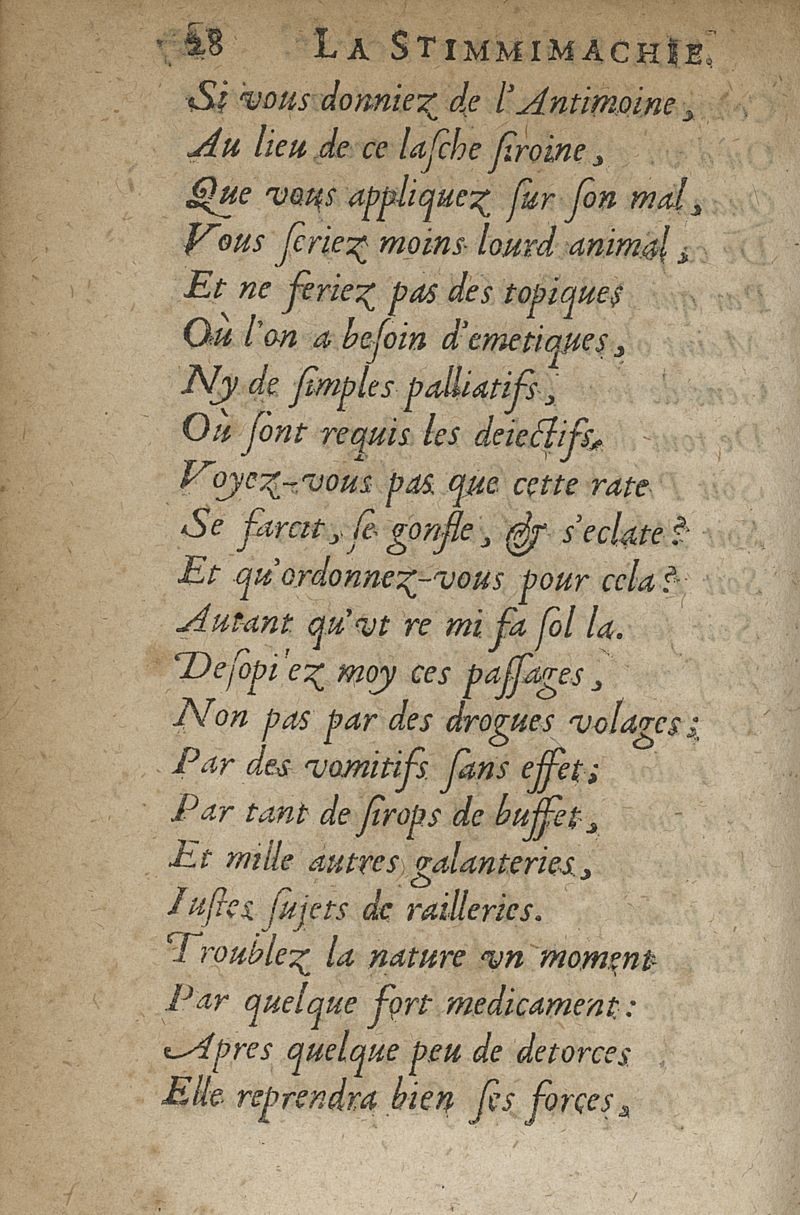 28 LA STIMMIMACHIE.
Si vous donniez de l'Antimoine,
Au lieu de ce laſche ſiroine,
Que vous appliquez ſur ſon mal,
Vous ſeriez moins lourd animal,
Et ne feriez pas des topiques
Où l'on a beſoin d'emetiques,
Ny de ſimples palliatifs,
Où ſont requis les deiectifs.
Voyez-vous pas que cette rate
Se farcit, ſe gonfle, & s'eclate?
Et qu'ordonnez-vous pour cela?
Autant qu'vt re mi fa ſol la.
Deſopi'ez moy ces paſſages,
Non pas par des drogues volages;
Par des vomitifs ſans effet;
Par tant de ſirops de buffet,
Et mille autres galanteries,
Iuſtes ſujets de railleries.
Troublez la nature vn moment
Par quelque fort medicament:
Apres quelque peu de detorces
Elle reprendra bien ſes forces,